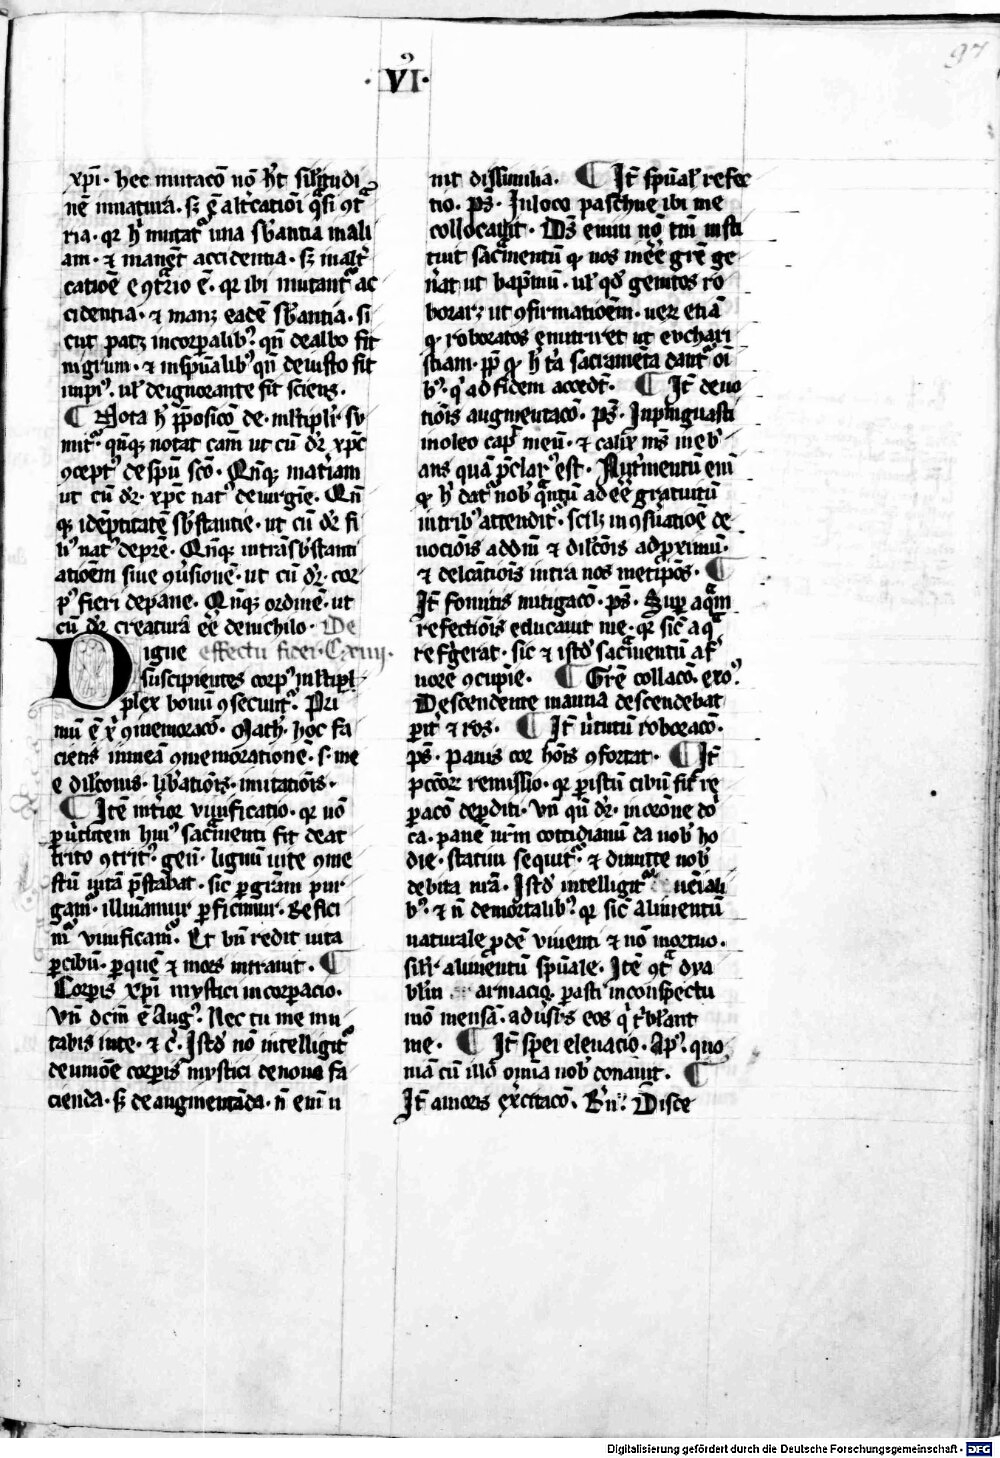 97
·VI·
xp̄i· hec mutacō nō h̄t sil̄itudi
nē in natura· sꝫ ē alt̄catiōi q̄si ꝯt̄
ria· qꝛ h̓ mutat᷑ una sb̄antia in ali
am· ⁊ manēt accidentia· sꝫ in alt̄
catiōe e ꝯt̄rio ē· qꝛ ibi mutant᷑ ac
cidentia· ⁊ manꝫ eadē sb̄antia· si
cut patꝫ in corꝑalibꝰ· qn̄ de albo fit
nigrum· ⁊ in sp̄ualibꝰ qn̄ de iusto fit
impiꝰ· ul̓ de ignorante fit sciens·
¶ Nota h̓ p̄posicō de· ml̄tiplr̓ su
mit᷑· qn̄qꝫ notat cām ut cū dr̄ xp̄c
ꝯceptꝰ de sp̄u scō· Qn̄qꝫ mat̄iam
ut cū dr̄· xp̄c natꝰ de uirgīe· Qn̄
qꝫ idēptitatē sb̄stantie· ut cū dr̄ fi
liꝰ natꝰ de pr̄e· Qn̄qꝫ intrāsb̄stanti
atioēm siue ꝯuersionē· ut cū dr̄· cor
pꝰ fieri de pane· Qn̄qꝫ ordinē· ut
cū dr̄ creaturā ēē de nichilo· De
effectu fidei· Cxiiij·
Digne
suscipientes corpꝰ ml̄tipl
plex bonū ꝯsecunt᷑· Pri
mū ē x̓ ꝯmemoracō· Math· hoc fa
cietis in meā ꝯmemorationē· s· me
e dil̄cōnis· lib̄atiōis· imitatiōis·
¶ Itē int̄ior viuificatio· qꝛ uō
ꝑ uirtutem huiꝰ sac̄menti fit de at
trito ꝯtritꝰ· gen̄· lignū uite ꝯme
stū uitā p̄stabat· sic ꝑ gr̄am pur
gam᷑· illuīamur ꝑficimur· Refici
m᷑ viuificam᷑· Et bn̄ redit uita
ꝑ cibū· ꝑ quē ⁊ mors intrauit· ¶
Corꝑis xp̄i mystici incorꝑacio·
Vn̄ dcm̄ ē Augꝰ· Nec tu me mu
tabis in te· ⁊ c̄· Istd̓ nō intelligit᷑
de uniōe corꝑis mystici de nouo fa
cienda· sꝫ de augmentāda· n̄ eni̅ u
nit dissimilia· ¶ It̄ sp̄ual̓ refec
tio· p̄s· In loco pascue ibi me
collocauit· Ds̄ enim nō tm̄ insti
tuit sac̄mentū qꝫ nos in ēē gr̄e ge
n̄at ut baptm̄u· ul̓ qd̓ genitos ro
boraꝫ ut ꝯfirmatioēm· ueꝝ etiā
qꝫ roboratos enutriret ut euchari
stiam· pp̄ qꝫ h̓ t̓a sacramēta dant᷑ oī
bꝰ· q̓ ad fidem accedt̄· ¶ It̄ deuo
tiōis augmentacō· p̄s· Inpinguasti
in oleo cap̄ meū· ⁊ calix ms̄ inebr̓
ans quā p̄clarꝰ est· Nut̓mentū eni̅
qꝫ h̓ dat᷑ nob̓ q̄ntū ad ēē gratuitū
in tribꝰ attendit᷑· scilꝫ in ꝯsuatiōe de
uociōis ad dn̄m ⁊ dil̄cōis ad ꝓximū·
⁊ delc̄atiōis intra nos metip̄os· ¶
It̄ fomitis mitigacō· p̄s· Suꝑ aq̄m
refectiōis educauit me· qꝛ sic̄ aq̄
refrigerat· sic ⁊ istd̓ sac̄mentū af
norē ꝯcupie· ¶ Gr̄e collacō· exoꝰ·
Descendente manna descendebat
parit̓ ⁊ ros· ¶ It̄ uirtutū roboracō·
p̄s· Panis cor hōis ꝯfortat· ¶ It̄
pccōꝝ remissio· qꝛ ꝑ istū cibū fit re
ꝑacō deꝑditi· Vn̄ qn̄ dr̄· in orōne do
ca· panē nr̄m cottidianū da nob̓ ho
die· statim sequit᷑· ⁊ dimitte nob̓
debita nr̄a· Istd̓ intelligit᷑ ueniali
bꝰ· ⁊ n̄ de mortalibꝰ· qꝛ sic̄ alimentū
naturale ꝓdē viuenti ⁊ nō mortuo·
sil̓r alimentū sp̄uale· Itē ꝯt̄ dya
bl̄in armacio· parasti in conspectu
mō mensā· aduersus eos q̓ tr̓bl̄ant
me· ¶ It̄ spei eleuacio· Apꝰ· quo
niā cū illo omīa nob̓ donauit· ¶
It̄ amoris exc̓itacō· B̓n· Disce
Digitalisierung gefördert durch die Deutsche Forschungsgemeinschaft - DFG